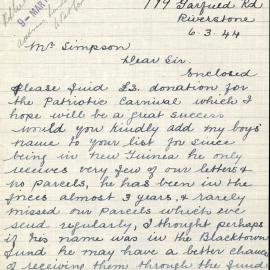 9 - MAR
Garfield Rd
Riverstone
6.3.44
Mr Simpson
Dear Sir.
Enclosed
please find £3. donation for
the Patriotic Carnival which I
hope will be a great success
would you kindly add my boys'
name to your list for since
being in New Guinea he only
receives very few of our letters &
no parcels, he has been in the
forces almost 3 years, & rarely
missed our parcels which we
send regularly, I thought perhaps
if his name was in the Blacktown
fund he may have a better chance
of receiving them through the fund